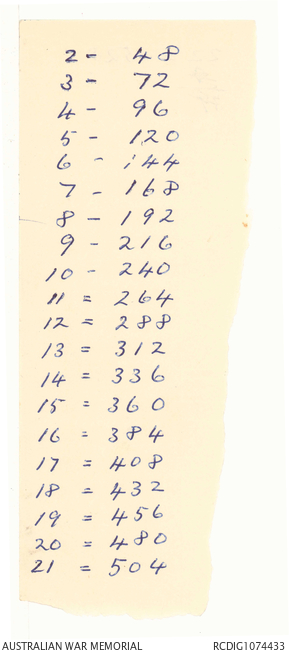 2 - 48
3 - 72
4 - 96
5 - 120
6 - 144
7 - 168
8 - 192
9 - 216
10 - 240
11 = 264
12 = 288
13 = 312
14 = 336
15 = 360
16 = 384
17 = 408
18 = 432
19 = 456
20 = 480
21 = 504
AUSTRALIAN WAR MEMORIAL RCDIG1074433